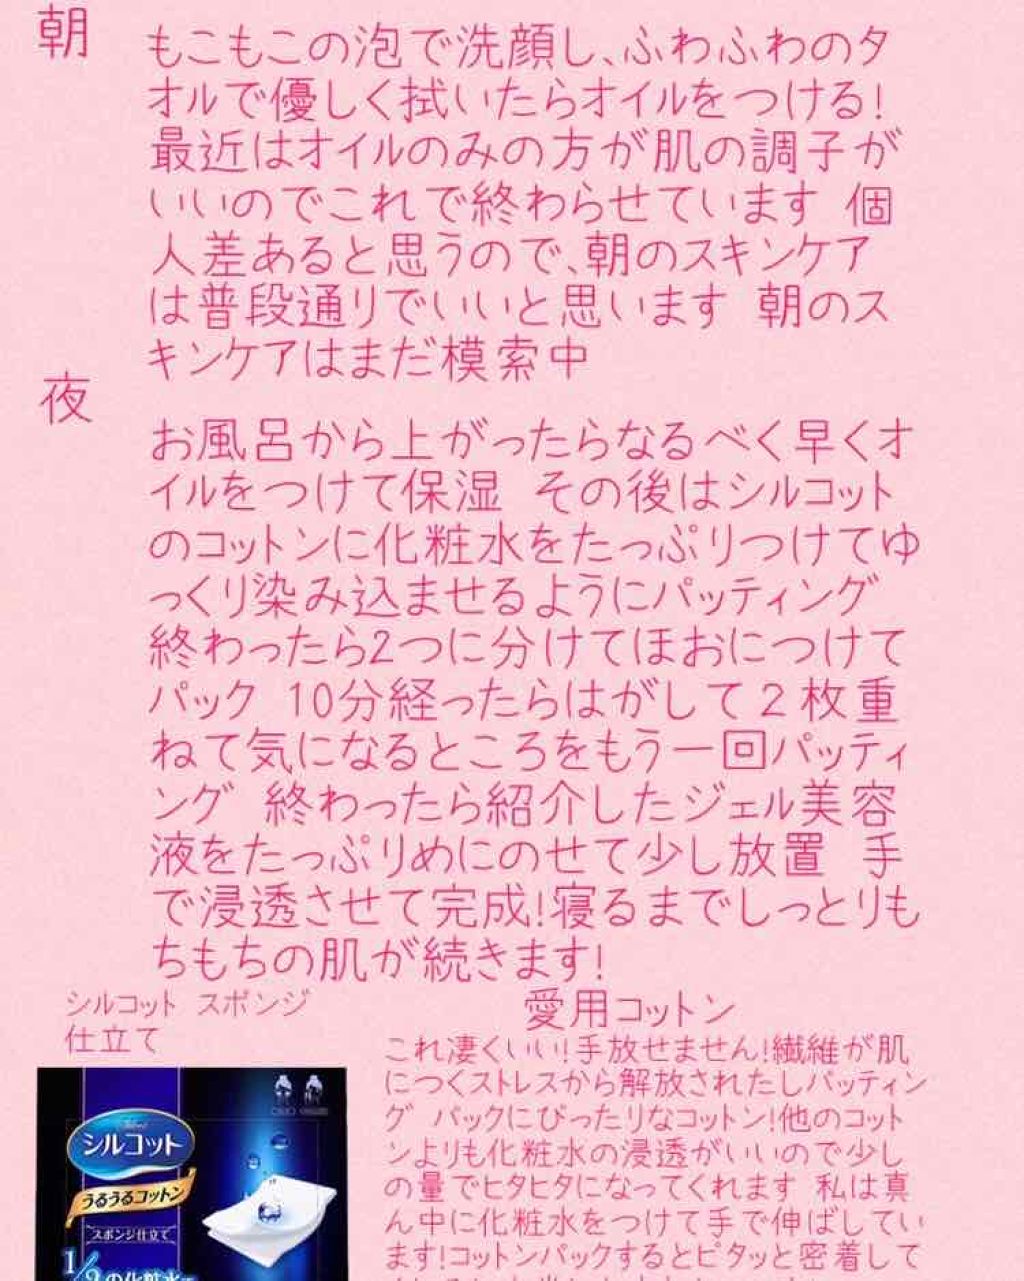 朝
もこもこの泡で洗顔し、ふわふわのタ
オルで優しく拭いたらオイルをつける!
最近はオイルのみの方が肌の調子が
いいのでこれで終わらせています 個
人差あると思うので、朝のスキンケア
は普段通りでいいと思います 朝のス
キンケアはまだ模索中
夜
お風呂から上がったらなるべく早くオ
イルをつけて保湿 その後はシルコット
のコットンに化粧水をたっぷりつけてゆ
っくり染み込ませるようにパッティング
終わったら2つに分けてほおにつけて
パック 10分経ったらはがして2枚重
ねて気になるところをもう一回パッティ
ング 終わったら紹介したジェル美容
液をたっぷりめにのせて少し放置 手
で浸透させて完成!寝るまでしっとりも
ちもちの肌が続きます!
シルコット スポンジ
仕立て
愛用コットン
これ凄くいい!手放せません!繊維が肌
につくストレスから解放されたしパッティン
グ パックにぴったりなコットン!他のコット
ンよりも化粧水の浸透がいいので少し
の量でヒタヒタになってくれます 私は真
ん中に化粧水をつけて手で伸ばしてい
ます!コットンパックするとピタッと密着して
シルコット
うるうるコットン
スポンジ仕立て
1/2の化粧水で